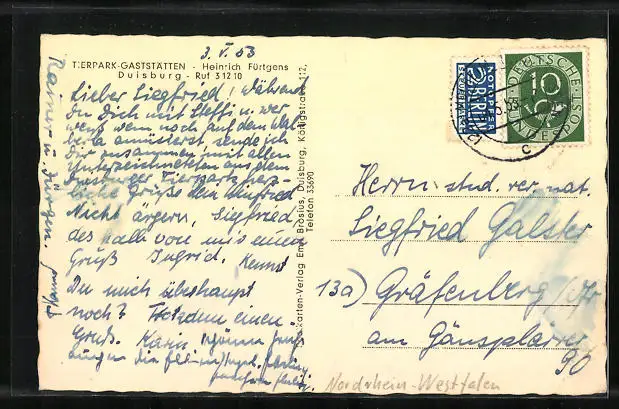 3. V. 53
TIERPARK-GASTSTÄTTEN - Heinrich Fürtgens
Duisburg - Ruf 31210
Lieber Siegfried! Während
Du Dich mit Steffi u. wer
weiß wem noch auf dem Wal-
berla amüsierst, sende ich
Dir zusammen mit allen
aus dem
Duisburger Tierpark herz-
liche Grüße Dein Winfried
Nicht ärgern, Siegfried,
deshalb von mir einen
Gruß Ingrid. Kennst
Du mich überhaupt
noch? Trotzdem einen
Gruß. Karin
Rainer u. Jürgen
Postkarten-Verlag Emil Brosius, Duisburg, Königstraße 112,
Telefon 33690
NOTOPFER
2 BERLIN
STEUERMARKE
DEUTSCHE POST
10
BUNDESPOST
c
Herrn stud. rer. nat.
Siegfried Galster
13a) Gräfenberg / Ofr
am Gänsplatz
90
Nordrhein-Westfalen